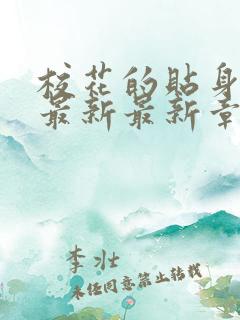 校花的贴身
最新最新章
李壮
未经同意禁止转载